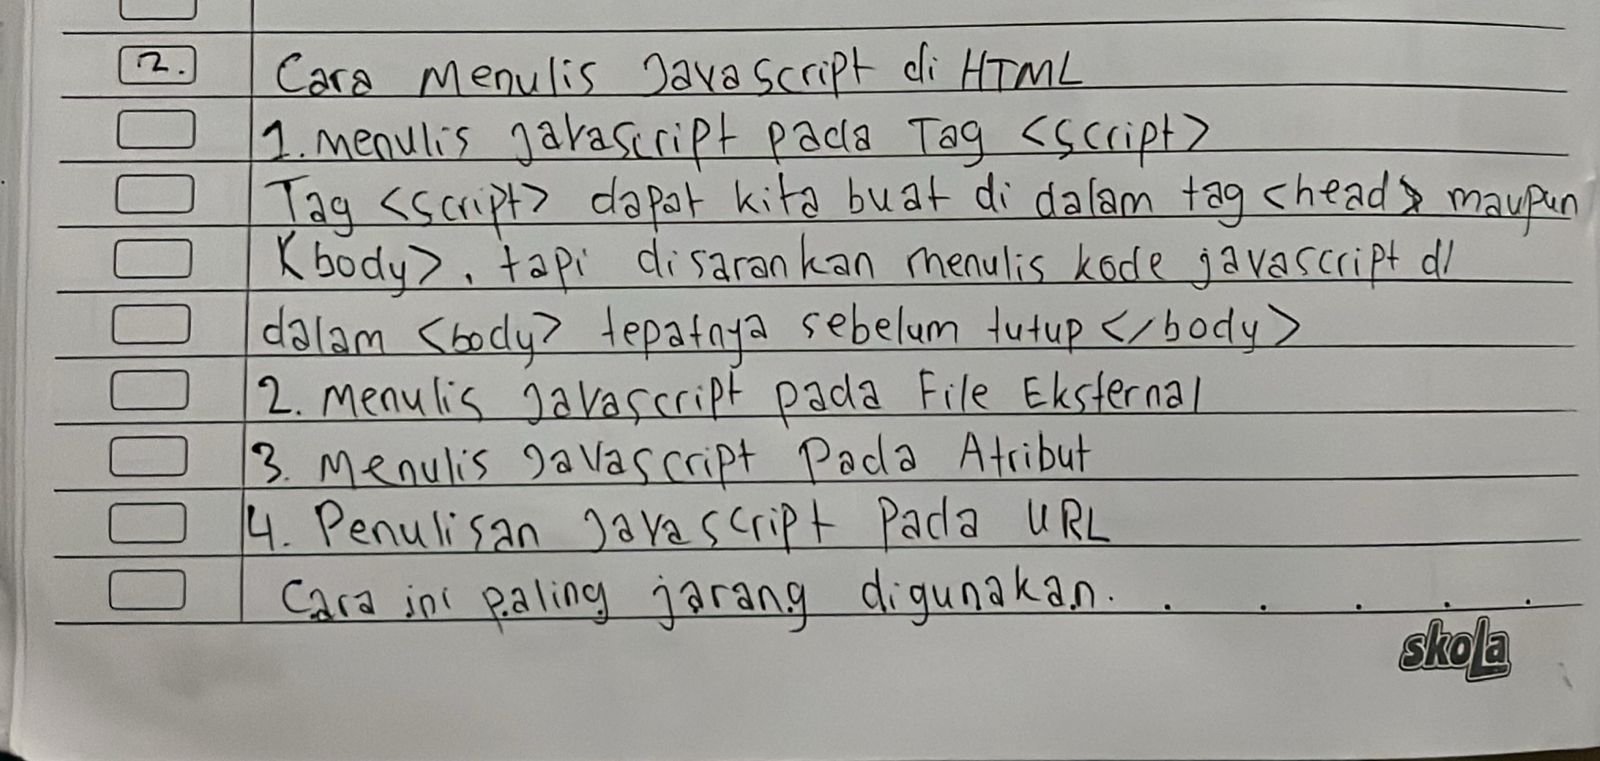 2. Cara Menulis Javascript di HTML
1. menulis javascript pada Tag <script>
Tag <script> dapat kita buat di dalam tag <head> maupun
<body>, tapi disarankan menulis kode javascript di
dalam <body> tepatnya sebelum tutup </body>
2. Menulis Javascript pada File Eksternal
3. Menulis Javascript Pada Atribut
4. Penulisan Javascript Pada URL
Cara ini paling jarang digunakan. . . . . .
skola